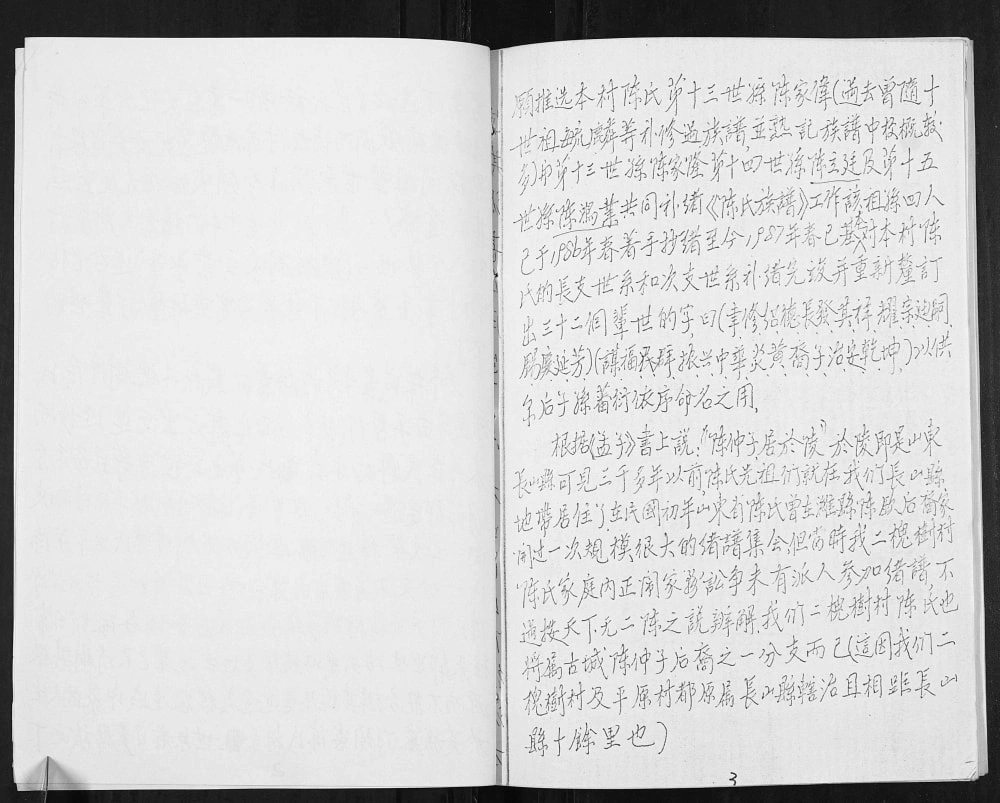 願推选本村陈氏第十三世孫陈家偉(過去曾隨十
世祖毓麟等补修過族譜並熟記族譜中校概数
多)与第十三世孫陈家隆第十四世孫陈立廷及第十五
世孫陈鴻業共同补緒《陈氏族譜》工作該祖孫四人
已于1986年春著手抄緒至今1987年春已基本对本村陈
氏的長支世系和次支世系补緒完竣并重新釐訂
出三十二個輩世的字曰(聿修绍德長發其祥耀宗迪嗣
賜慶延芳)(謀福民群振兴中華炎黄裔子治安乾坤)以供
尔后子孫蕃衍依序命名之用。
根据《孟子》書上説:"陈仲子居於陵"於陵即是山東
長山縣可見二千多年以前陈氏先祖们就在我们長山縣
地帶居住了在民國初年山東省陈氏曾在濰縣陈
后裔家
開过一次規模很大的緒譜集会但當時我二槐樹村
陈氏家庭内正鬧家務訟争未有派人参加緒譜,不
過按天下无二陈之説辨解,我们二槐樹村陈氏也
将属古城陈仲子后裔之一分支而已(這因我们二
槐樹村及平原村都原属長山縣轄治且相距長山
縣十餘里也)
3